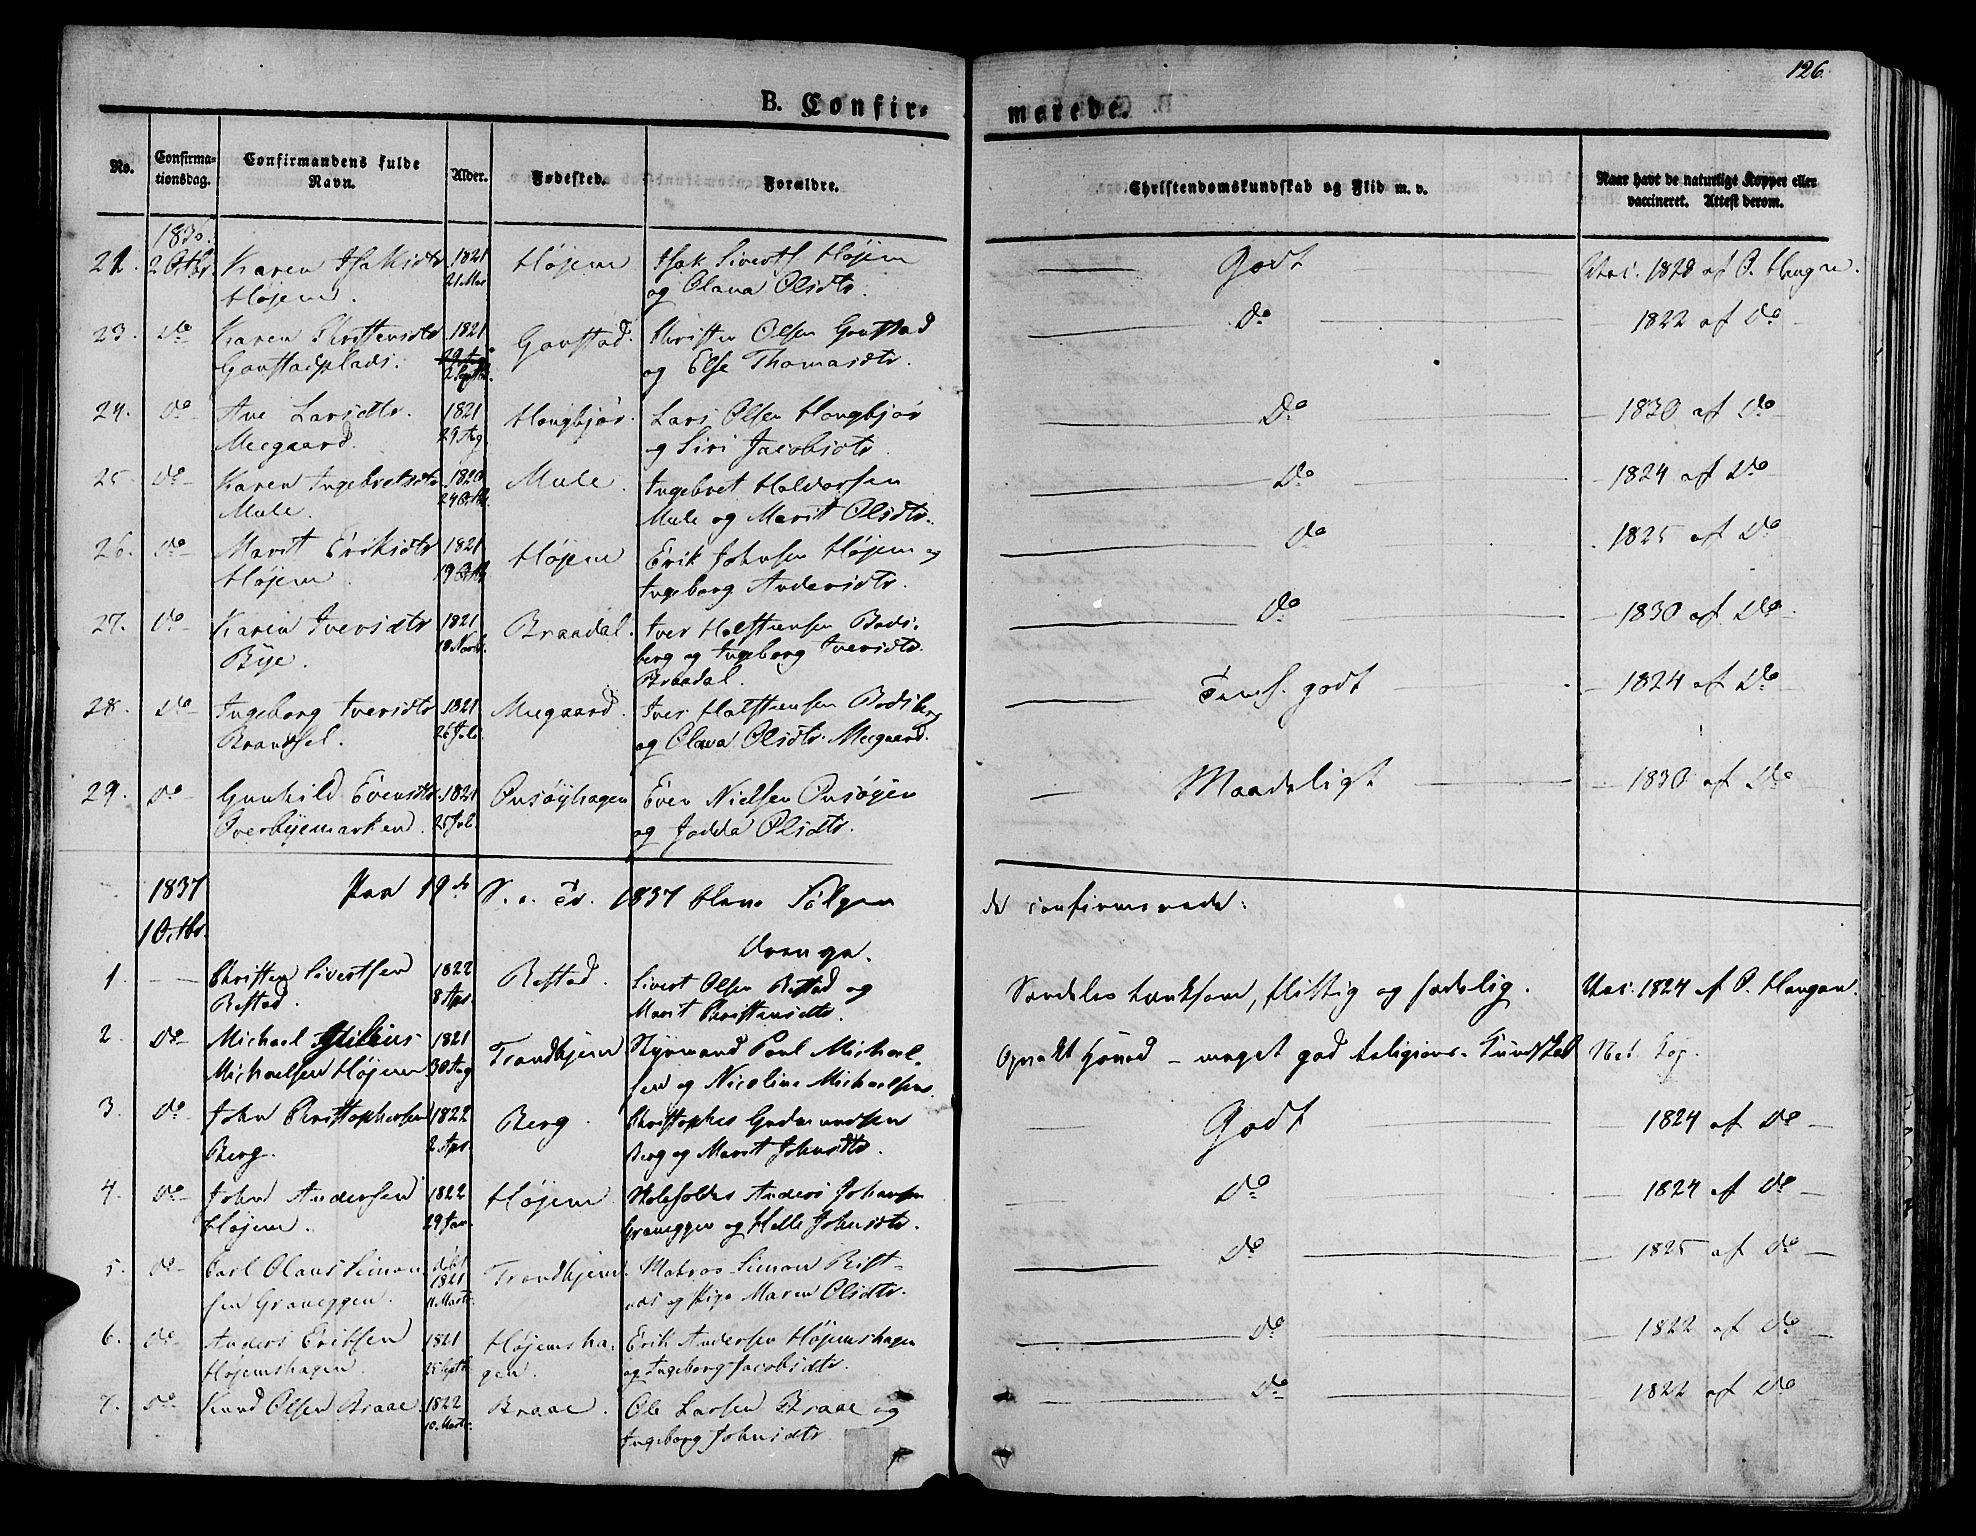 126.
B. Confir- marede.
No.
Confirma-
tionsdag.
Confirmandens fulde
Navn.
Alder.
Fødested.
Forældre.
Christendomskundskab og Flid m. v.
Naar havt de naturlige Kopper eller
vaccineret. Attest derom.
1836.
2 Octbr.
Karen Isaksdtr 1821 Højem Isak Siverts. Højem Godt Vac. 1828 af O.
Højem. 21 Mar og Olava Olsdtr.
23. Do Karen Christensdtr 1821 Gaustad. Christen Olsen Gaustad Do 1822 af Do
Gaustadplads. 2 Septbr. og Else Thomasdtr.
24. Do Ane Larsdtr. 1821 Haugbjør. Lars Olsen Haugbjør Do 1830 af Do
Meegaard. 29 Aug. og Siri Jacobsdtr.
25. Do Karen Ingebretsdtr Mule. Ingebret Haldorsen Do 1824 af Do
Mule. 24 Octb. Mule og Marit Olsdtr.
26. Do Marit Eriksdtr 1821 Højem Erik Johnsen Højem og Do 1825 af Do
Højem. 19 Octb. Ingeborg Andersdtr.
27. Do Karen Iversdtr 1821 Braadal. Iver Halstensen Bods- Do 1830 af Do
Bye. 18 Novb. berg og Ingeborg Iversdtr.
Braadal.
28. Do Ingeborg Iversdtr 1821 Meegaard. Iver Halstensen Bodsberg Tems. godt 1824 af Do
26 Jul. og Olava Olsdtr. Meegaard.
29. Do Gunhild Evensdtr 1821 Onsøyhagen Even Nielsen Onsøyen Maadeligt 1830 af Do
Overbyemarken. 25 Jul. og Olsdtr.
1837 Paa 19de S. e. Tr. 1837 bleve Følgen
de confirmerede:
1 Octbr. Drenge.
1 Christen Sivertsen 1822 Rostad. Sivert Olsen Rostad og Særdeles tænksom, flittig og sædelig. Vac. 1824 af O. Haugan.
Rostad. 8 Apr. Marit Christensdtr.
2. Do Michael 1821 Trondhjem Styrmand Paul Michael- Opvakt Hoved - meget god Religions-Kundskab Nat. Kop.
Michaelsen Højem 30 Aug sen og Nicoline Michaelsens.
3. Do John Christophersen 1822 Berg. Christopher Gudmundsen Godt 1824 af Do
Berg. 2 Apr. Berg og Marit Johnsdtr.
4. Do John Andersen 1822 Højem Anders Johansen Do 1824 af Do
Højem. 29 Jan. Graneggen og Helle Johnsdtr.
5. Do Carl Olaus Simon- døbt Trondhjem. Matros Simon Do 1825 af Do
sen Graneggen. 1821 og Pige Maren Olsdtr.
11. Marts
6. Do Anders Eriksen 1821 Højemsha- Erik Andersen Højemshagen Do 1822 af Do
Højemshagen. 25 Septb. gen. og Ingeborg Jacobsdtr.
7. Do Knud Olsen Braae 1822 Braae. Ole Larsen Braae og Do 1822 af Do
10. Marts Ingeborg Johnsdtr.